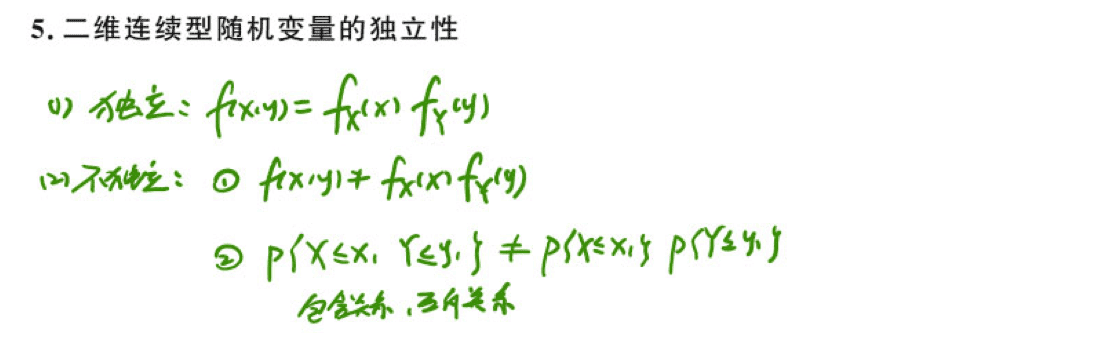 5. 二维连续型随机变量的独立性
(1) 独立: f(x,y) = f_X(x) f_Y(y)
(2) 不独立: ① f(x,y) ≠ f_X(x) f_Y(y)
② P{X≤x₁ Y≤y₁} ≠ P{X≤x₁} P{Y≤y₁}
包含关系,互斥关系